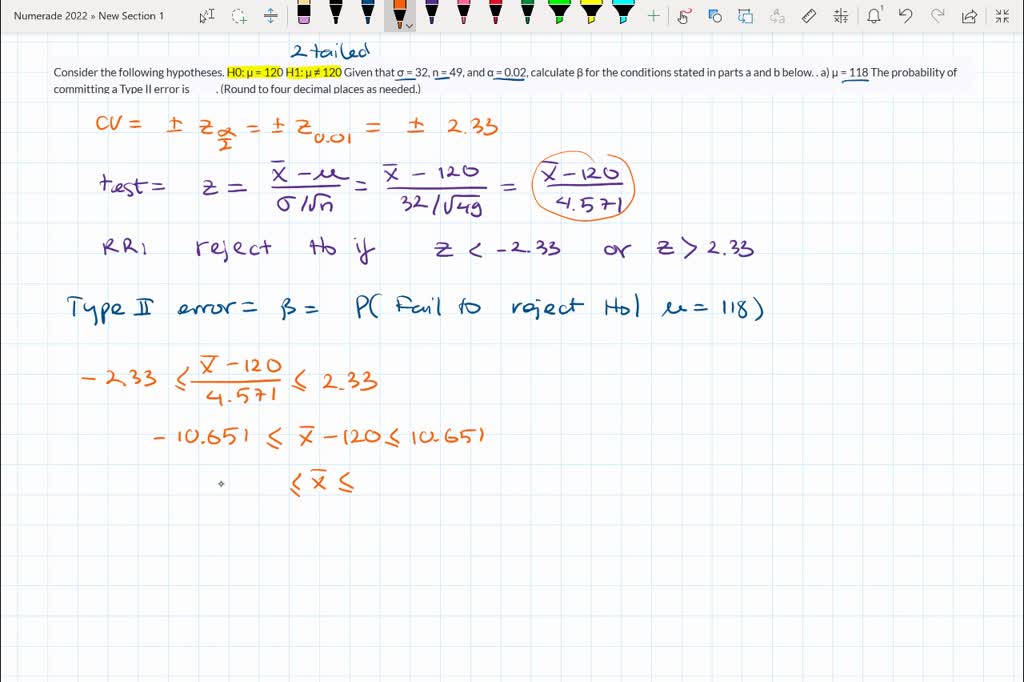 Numerade 2022 » New Section 1
2 tailed
Consider the following hypotheses. H0: μ = 120 H1: μ ≠ 120 Given that σ = 32, n = 49, and α = 0.02, calculate β for the conditions stated in parts a and b below. . a) μ = 118 The probability of
committing a Type II error is . (Round to four decimal places as needed.)
CV = ± z α/2 = ± z 0.01 = ± 2.33
test = z = x̄ - μ / σ/√n = x̄ - 120 / 32/√49 = x̄ - 120 / 4.571
RR: reject Ho if z < -2.33 or z > 2.33
Type II error = β = P( Fail to reject Ho | μ = 118 )
-2.33 ≤ x̄ - 120 / 4.571 ≤ 2.33
-10.651 ≤ x̄ - 120 ≤ 10.651
≤ x̄ ≤